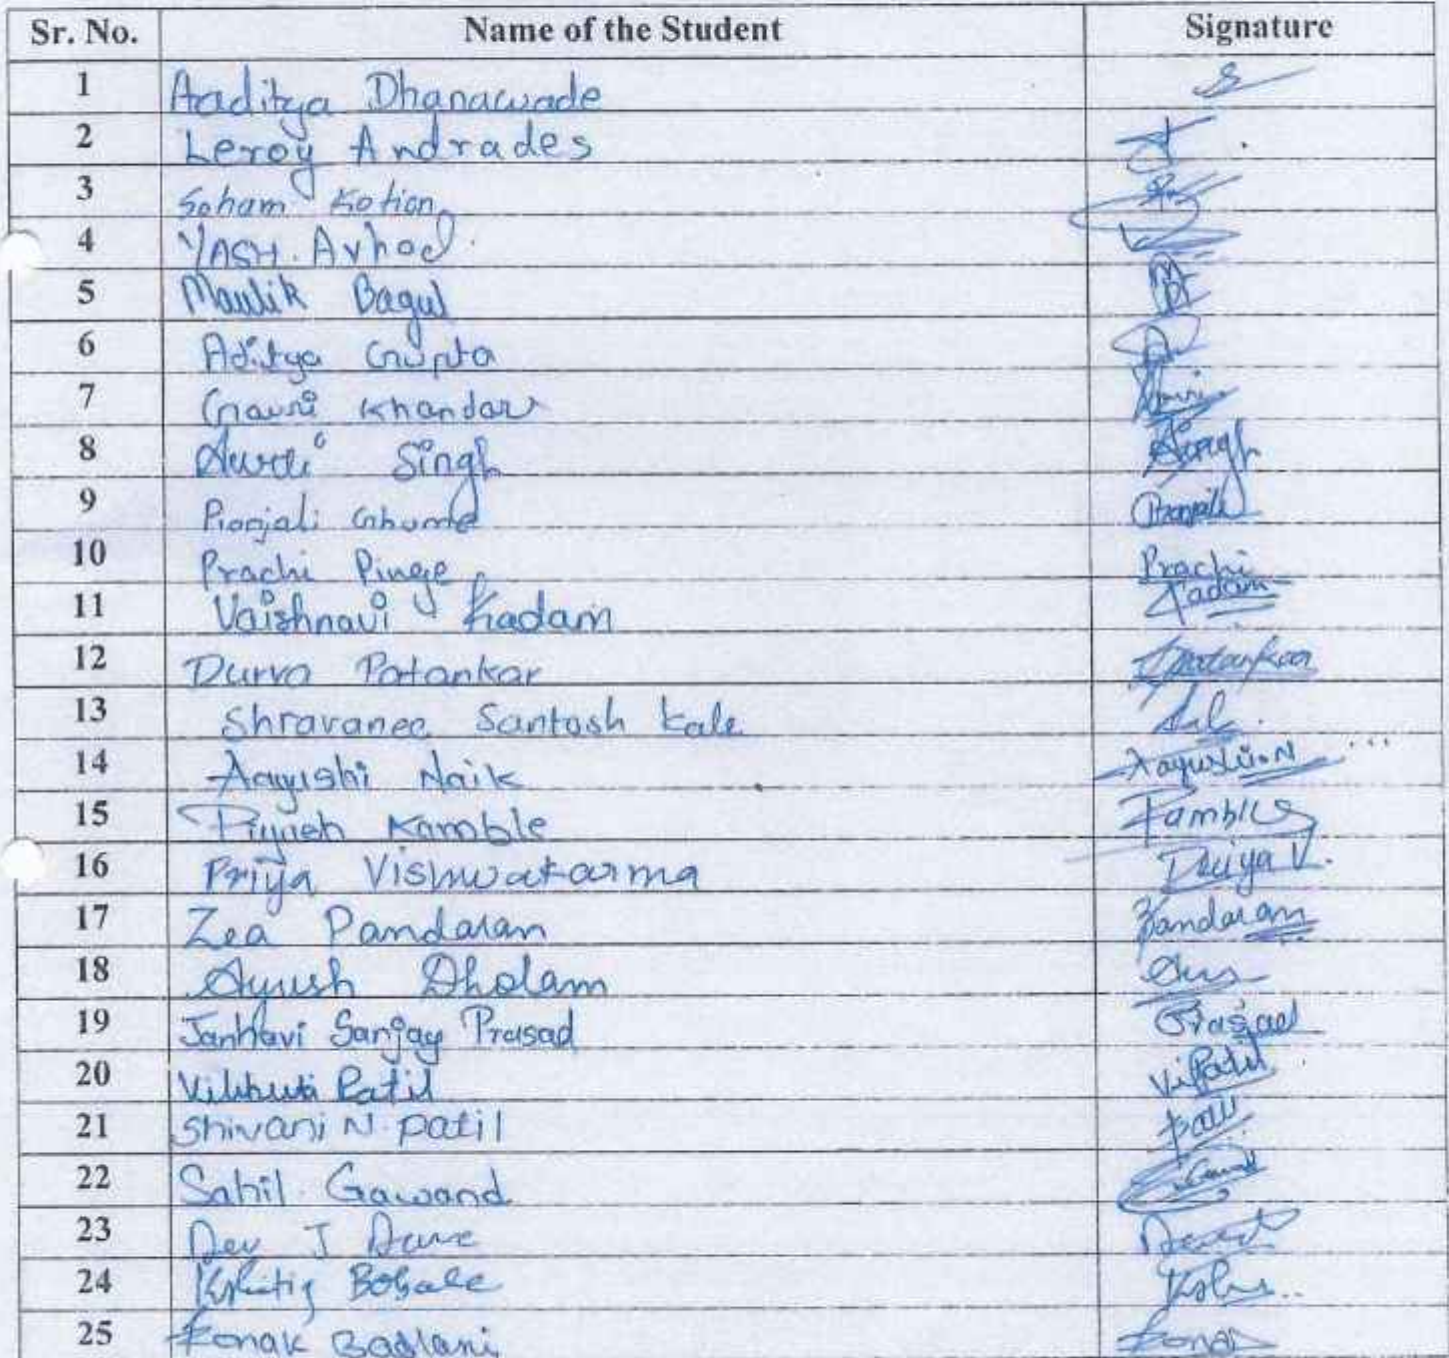 Sr. No. Name of the Student Signature
1 Aaditya Dhanawade
2 Leroy Andrades
3 Soham Kotian
4 YASH. Avhad.
5 Maulik Bagul
6 Aditya Gupta
7 Gauri Khandar
8 Singh
9 Pranjali Ghume
10 Prachi Pinge Prachi
11 Vaishnavi Kadam Kadam
12 Durva Patankar Patankar
13 Shravanee Santosh Kale
14 Aayushi Naik Aayushi.N
15 Piyush Kamble Kamble
16 Priya Vishwakarma Priya V.
17 Zea Pandaram Pandaram
18 Ayush Dholam
19 Janhavi Sanjay Prasad Prasad
20 Vibhuti Patil V.Patil
21 Shivani N. Patil Patil
22 Sahil Gawand
23 Dev J Dave
24 Kshitij Bobale
25 Ronak Badlani Ronak